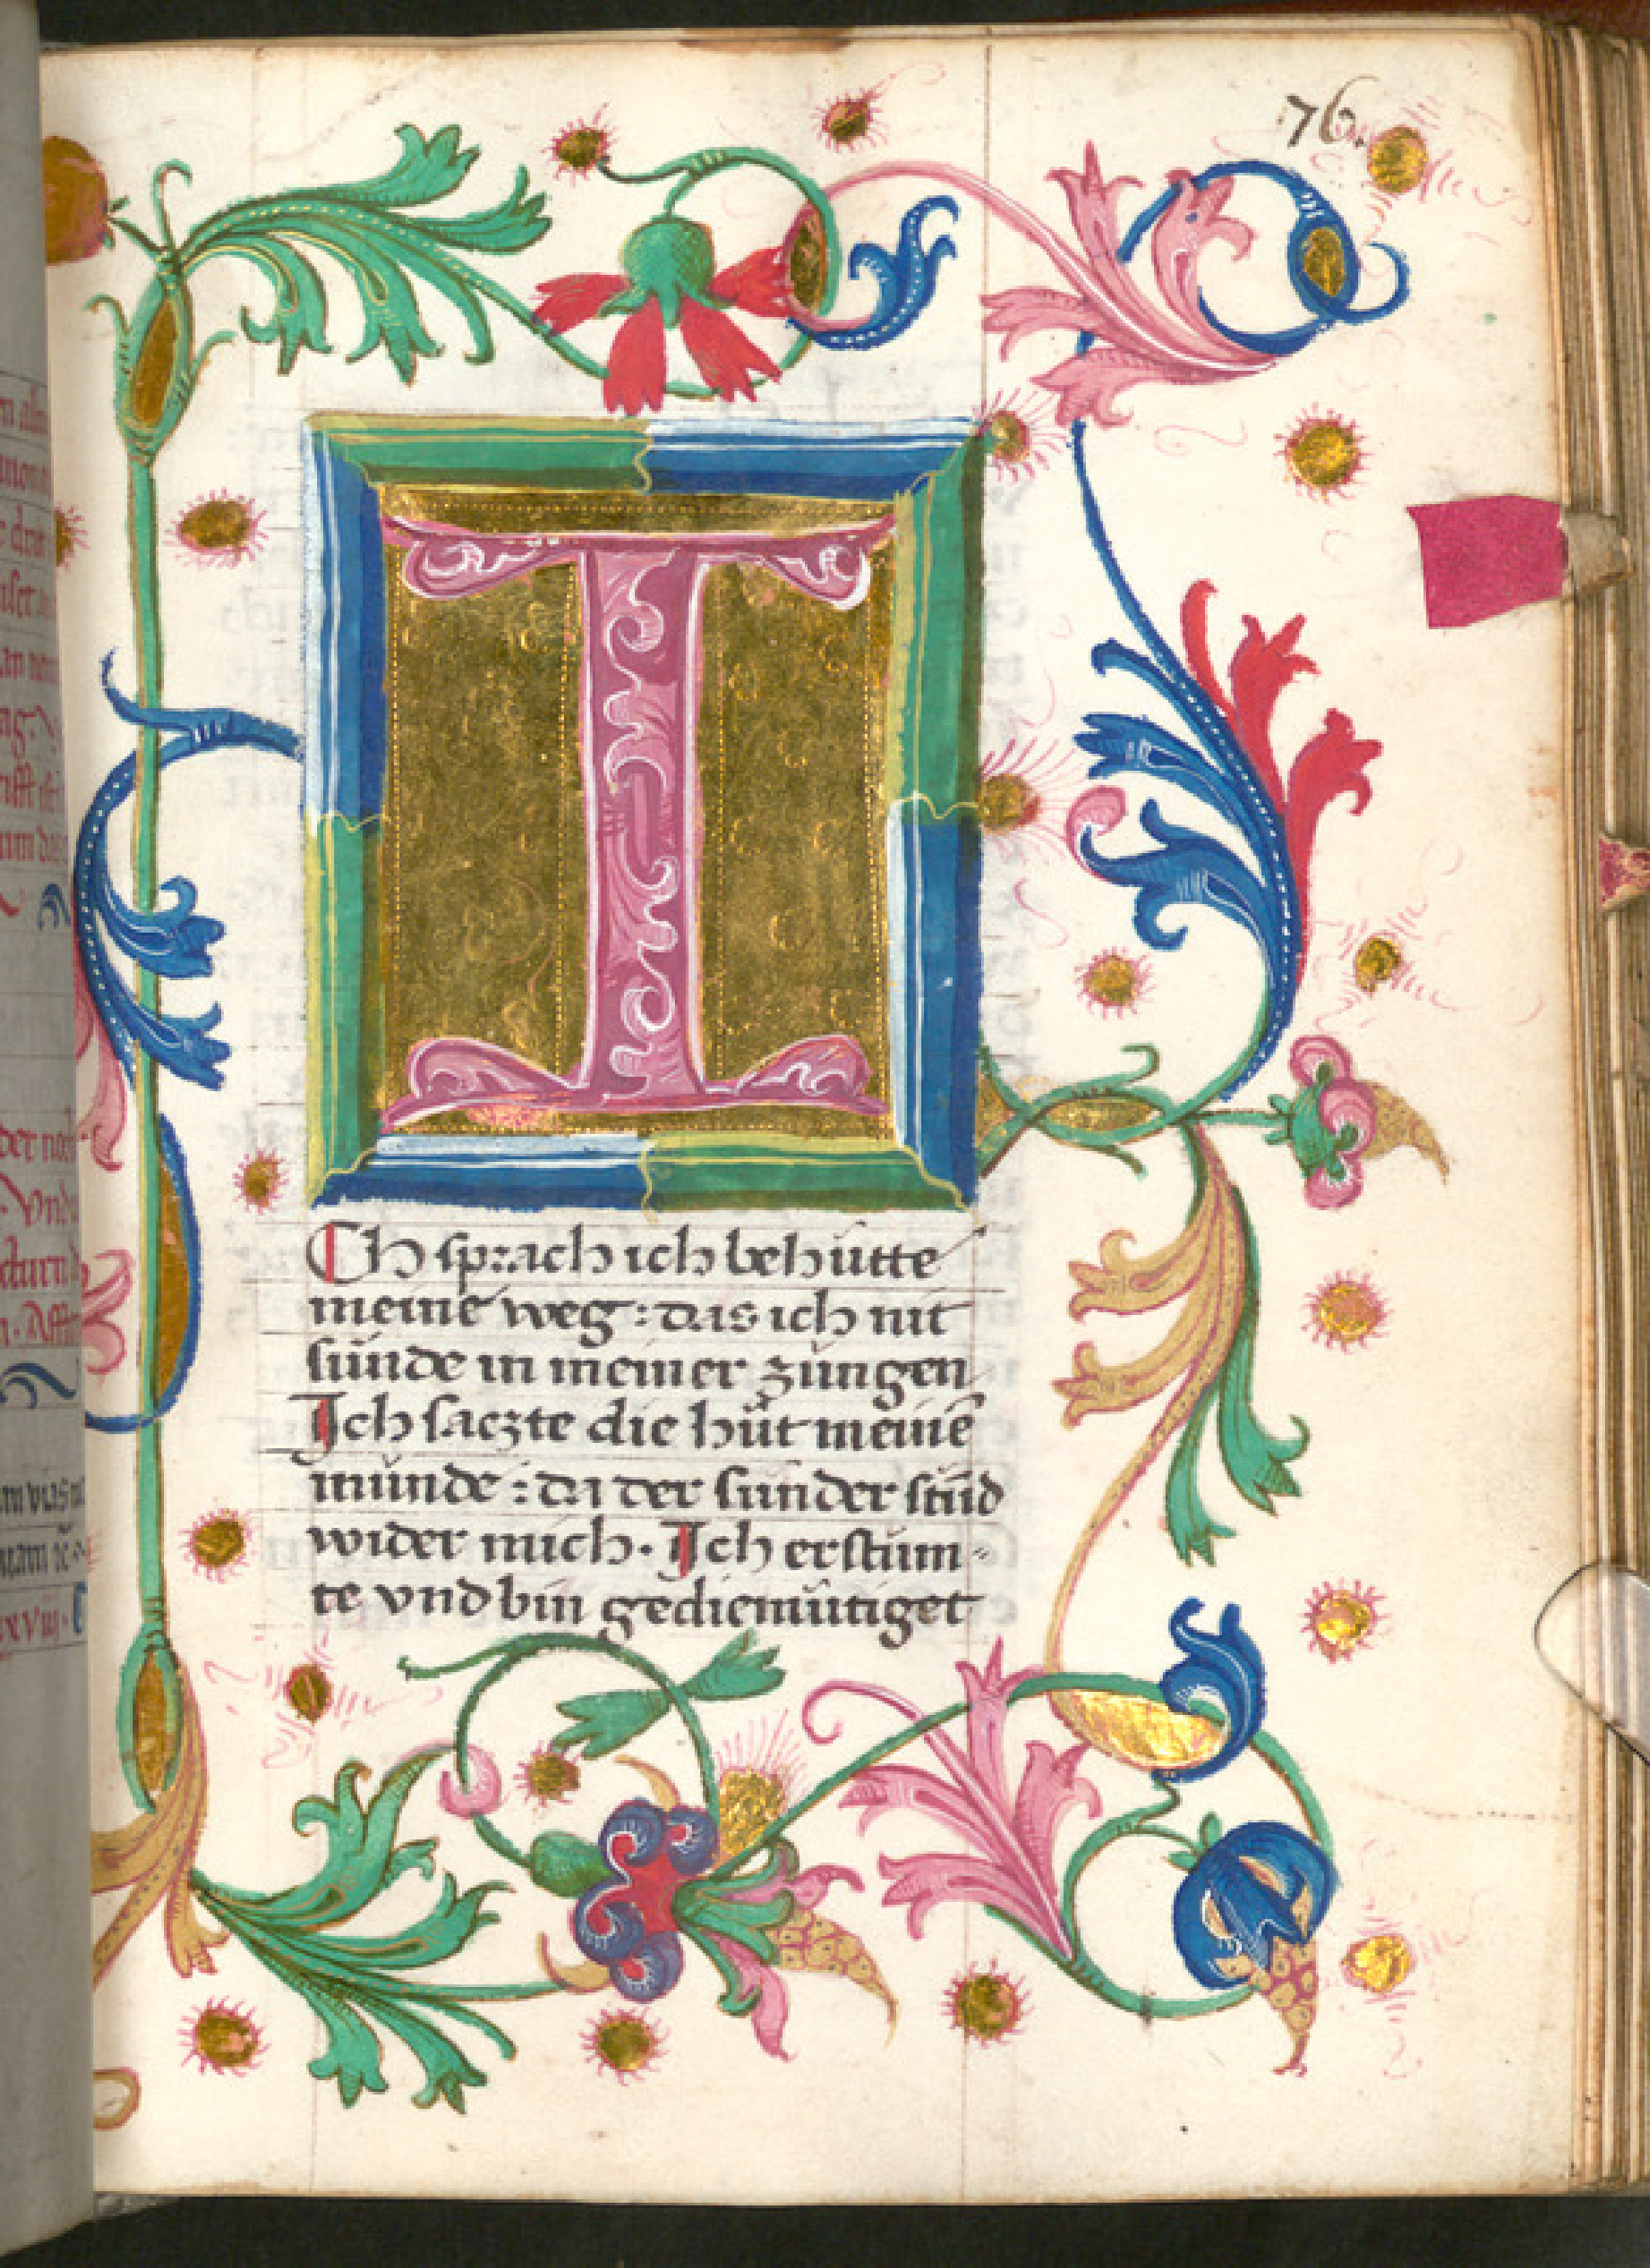 76.
I
Ch sprach ich behu̍tte
meinē weg : das ich nit
su̍nde in meiner zu̍ngen
Ich saczte die hu̍t meinē
mu̍nde : da der su̍nder stu̍d
wider mich . Ich erstum-
te vnd bin gediemu̍tiget